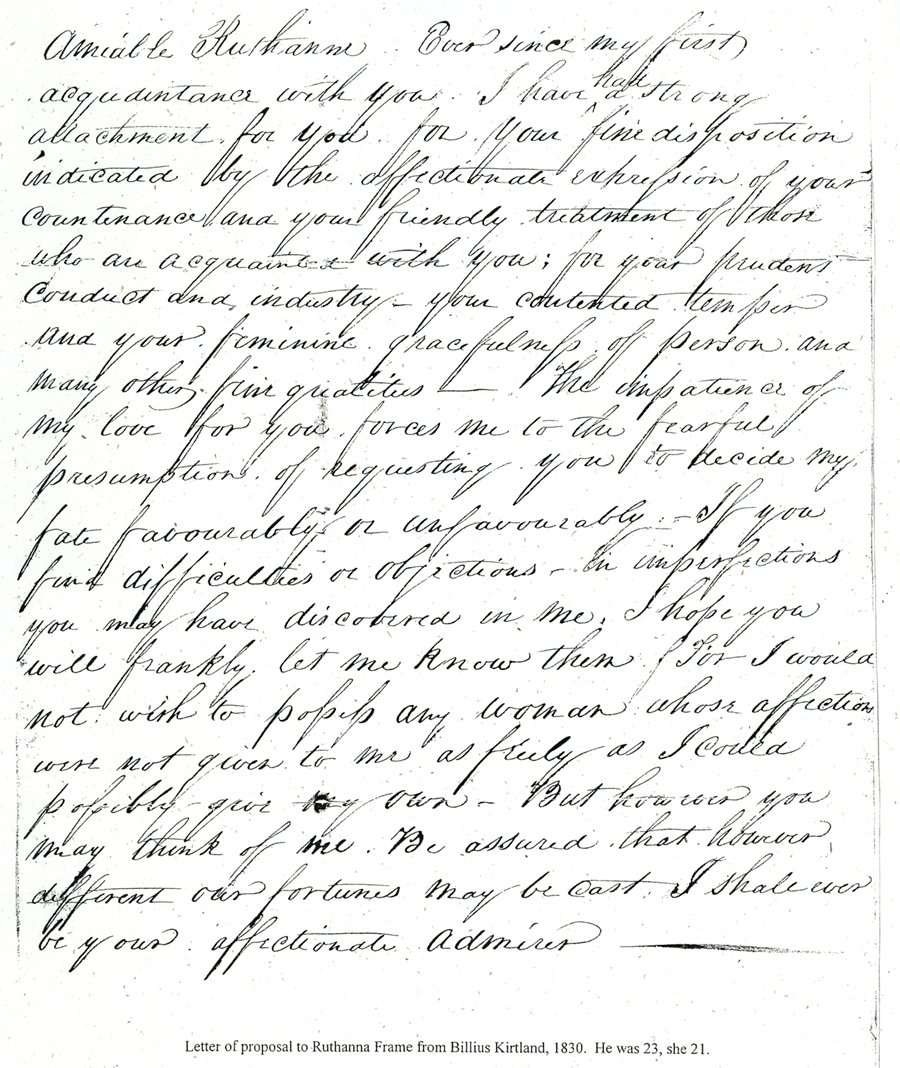 Amiable Ruthanne Ever since my first
acquaintance with you. I have had a strong
attachment for you. for your fine disposition
indicated by the affectionate expression of your
countenance and your friendly treatment of those
who are acquainted with you; for your prudent
conduct and industry – your contented temper
and your feminine gracefulness of person and
many other fine qualities — The impatience of
my love for you forces me to the fearful
presumption of requesting you to decide my
fate favourably or unfavourably – If you
find difficulties or objections – in imperfections
you may have discovered in me, I hope you
will frankly let me know them For I would
not wish to possess any woman whose affections
were not given to me as freely as I could
possibly give my own – But however you
may think of me. Be assured that however
different our fortunes may be cast. I shall ever
be your affectionate admirer
Letter of proposal to Ruthanna Frame from Billius Kirtland, 1830. He was 23, she 21.